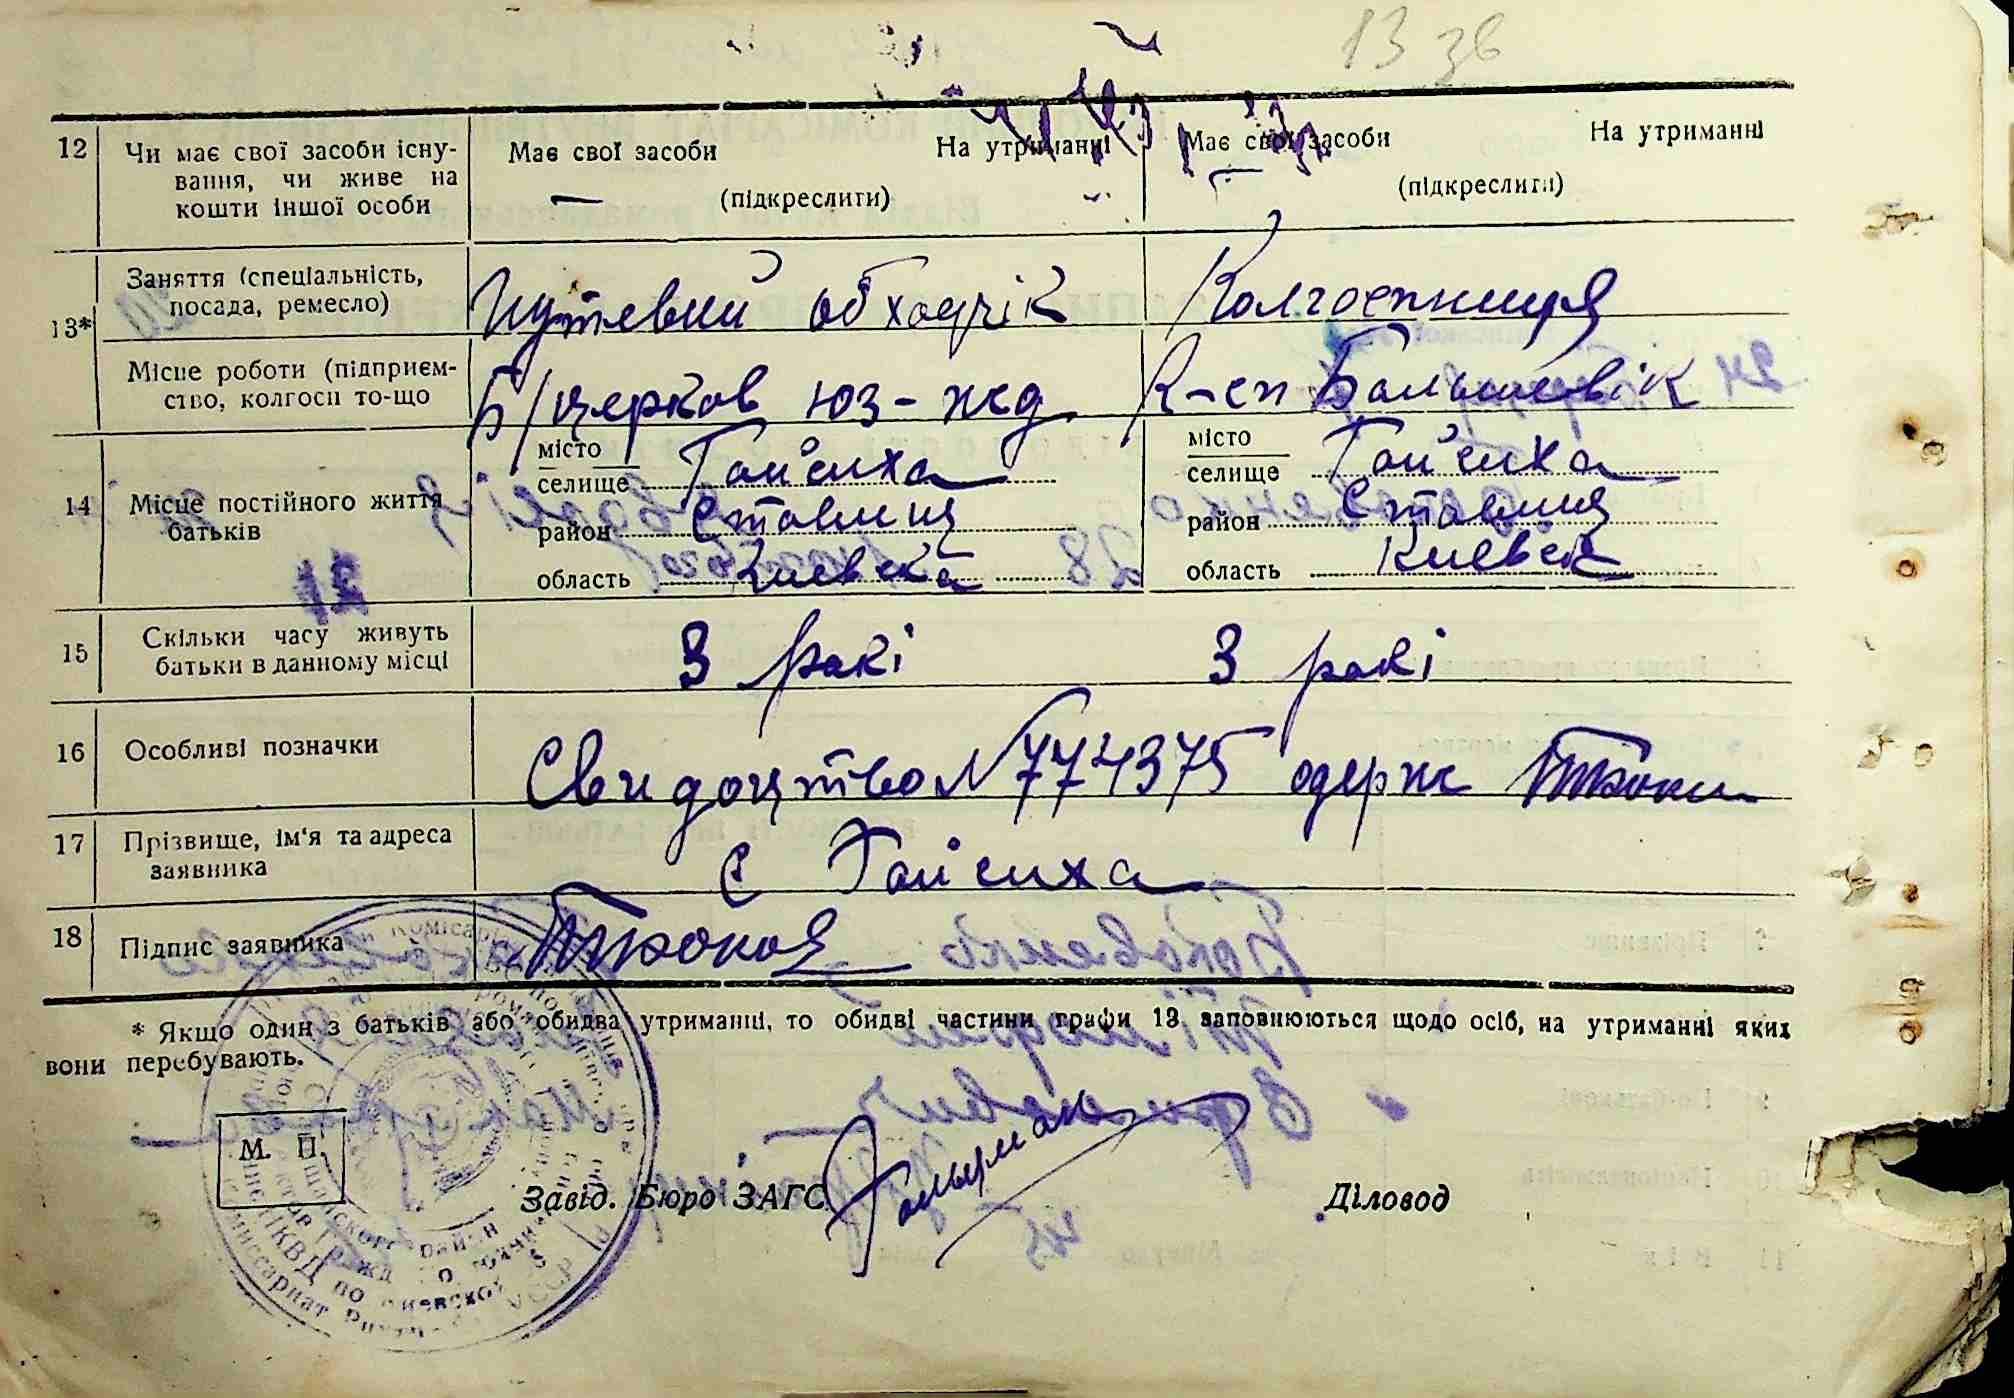 13 зв
12 Чи має свої засоби існу- Має свої засоби На утриманні Має свої засоби На утриманні
вання, чи живе на (підкреслити) (підкреслити)
кошти іншої особи
13* Заняття (спеціальність, Путевий обходчік Колгоспниця
посада, ремесло)
Місце роботи (підприєм- Б/церков юз-жд К-сп Большевік
ство, колгосп то-що
14 Місце постійного життя місто місто
батьків селище Гайсиха селище Гайсиха
район Ставищ район Ставищ
область Киевска область Киевск
21
15 Скільки часу живуть 3 рокі 3 рокі
батьки в данному місці
16 Особливі позначки Свидоцтво №774375 одерж
17 Прізвище, ім'я та адреса с Гайсиха
заявника
18 Підпис заявника
* Якщо один з батьків або обидва утриманні, то обидві частини графи 13 заповнюються щодо осіб, на утриманні яких
вони перебувають.
М. П.
Завід. Бюро ЗАГС Діловод